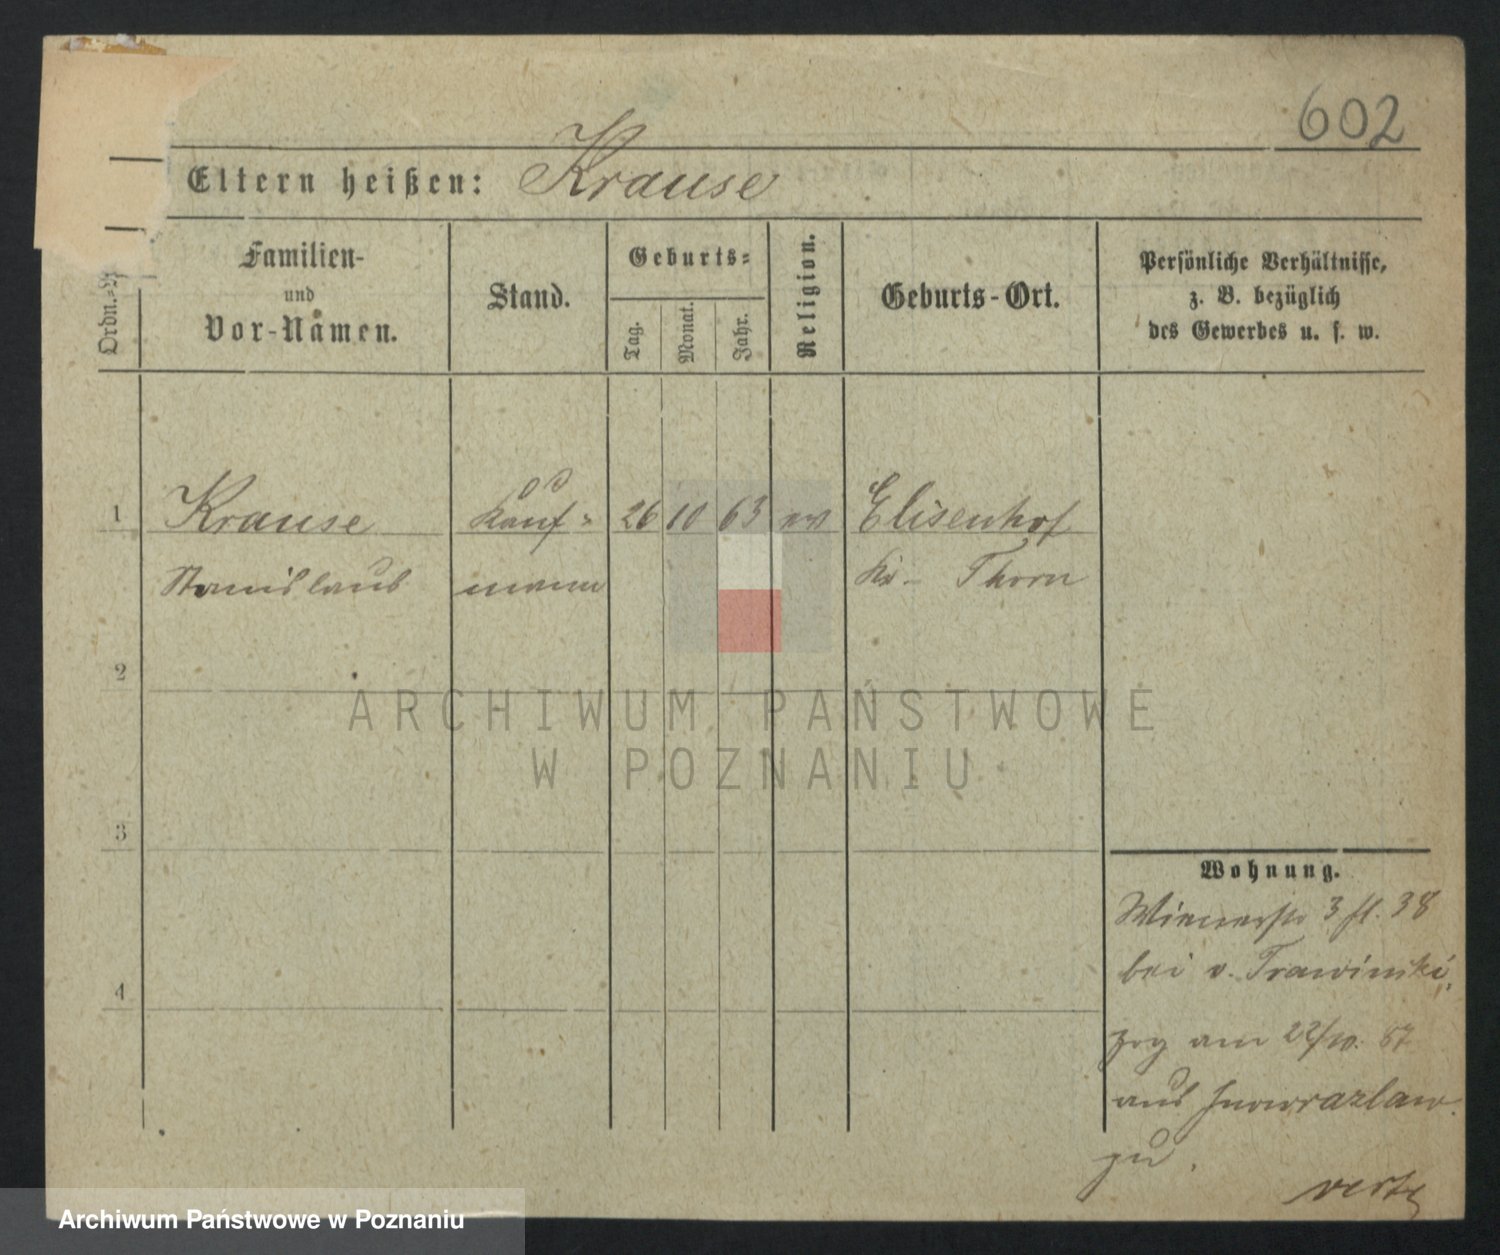 602
Eltern heißen: Krause
Ordn.-N
Familien-
und
Vor-Namen.
Stand.
Geburts-
Tag.
Monat.
Jahr.
Religion.
Geburts-Ort.
Persönliche Verhältnisse,
z. B. bezüglich
des Gewerbes u. s. w.
1 Krause Kauf- 26 10 63 ev Elisenhof
Stanislaus mann Kr. Thorn
2
ARCHIWUM PAŃSTWOWE
W POZNANIU
3
Wohnung.
Wienerstr 3 fl. 38
bei v. Trawinski,
4
zog am 22/10. 87
aus Inowrazlaw
zu.
verte
Archiwum Państwowe w Poznaniu